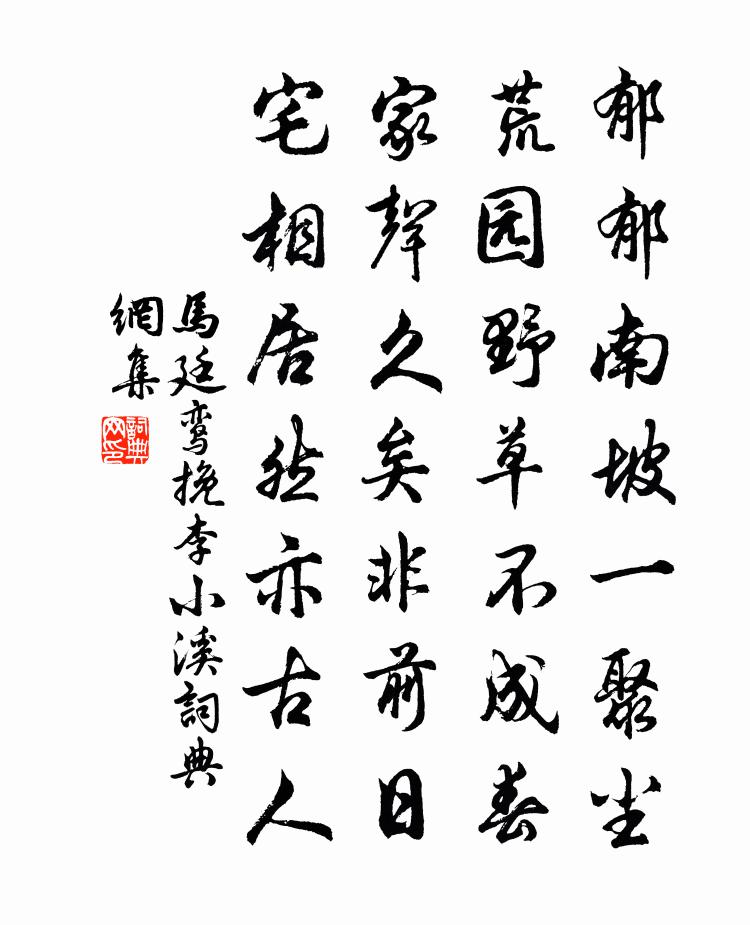 郁郁南坡一聚尘
荒园野草不成春
家聲久矣非前日
宅相居然亦古人
馬廷鸾挽李小溪詞典
網集
詞典
网印